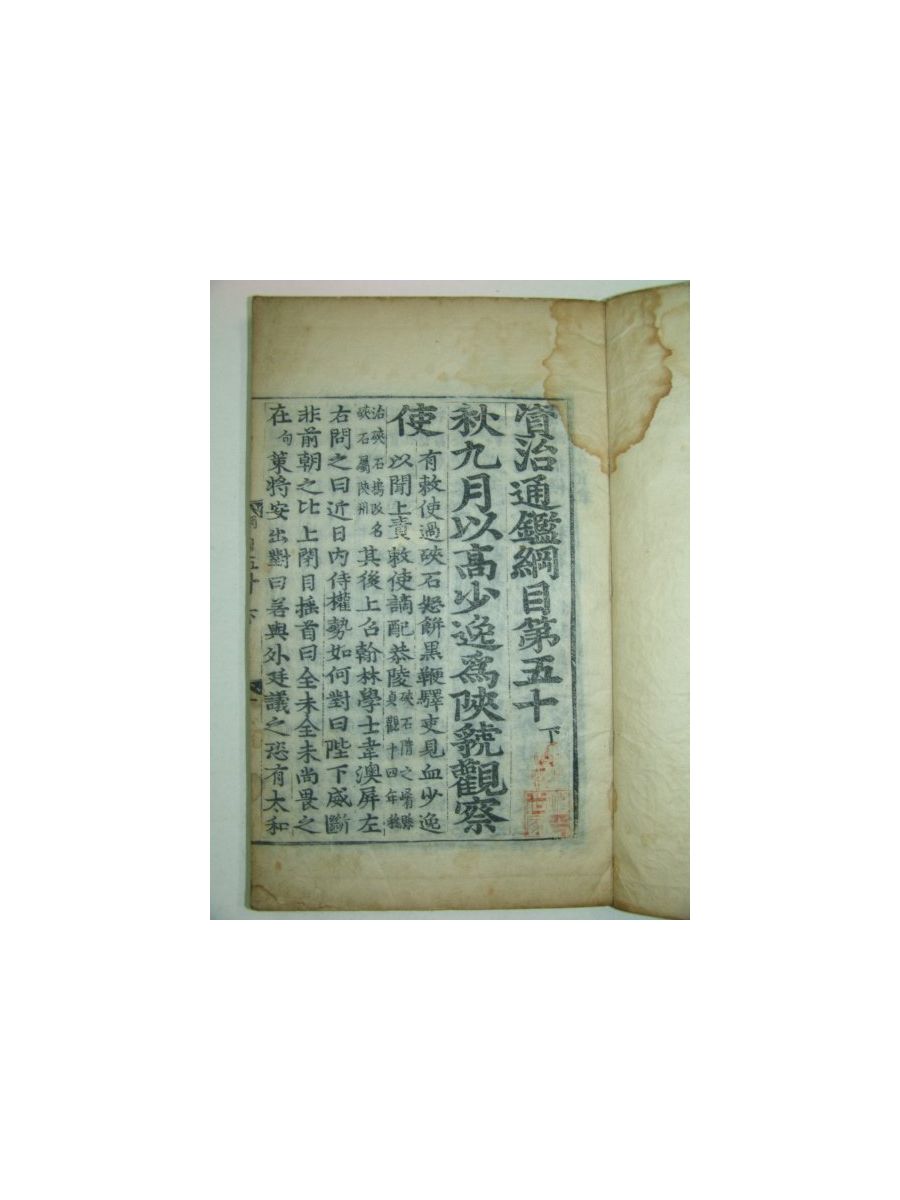 資治通鑑綱目第五十 下
秋九月以高少逸爲陝虢觀察
使 有敕使過硤石怒餅黑鞭驛吏見血少逸
以聞上責敕使謫配恭陵 硤石隋之崤縣 貞觀十四年移
治硤石塢改名 硤石屬陝州 其後上召翰林學士韋澳屏左
右問之曰近日內侍權勢如何對曰陛下威斷
非前朝之比上閉目搖首曰全未全未尚畏之
在 句 策將安出對曰若與外廷議之恐有太和